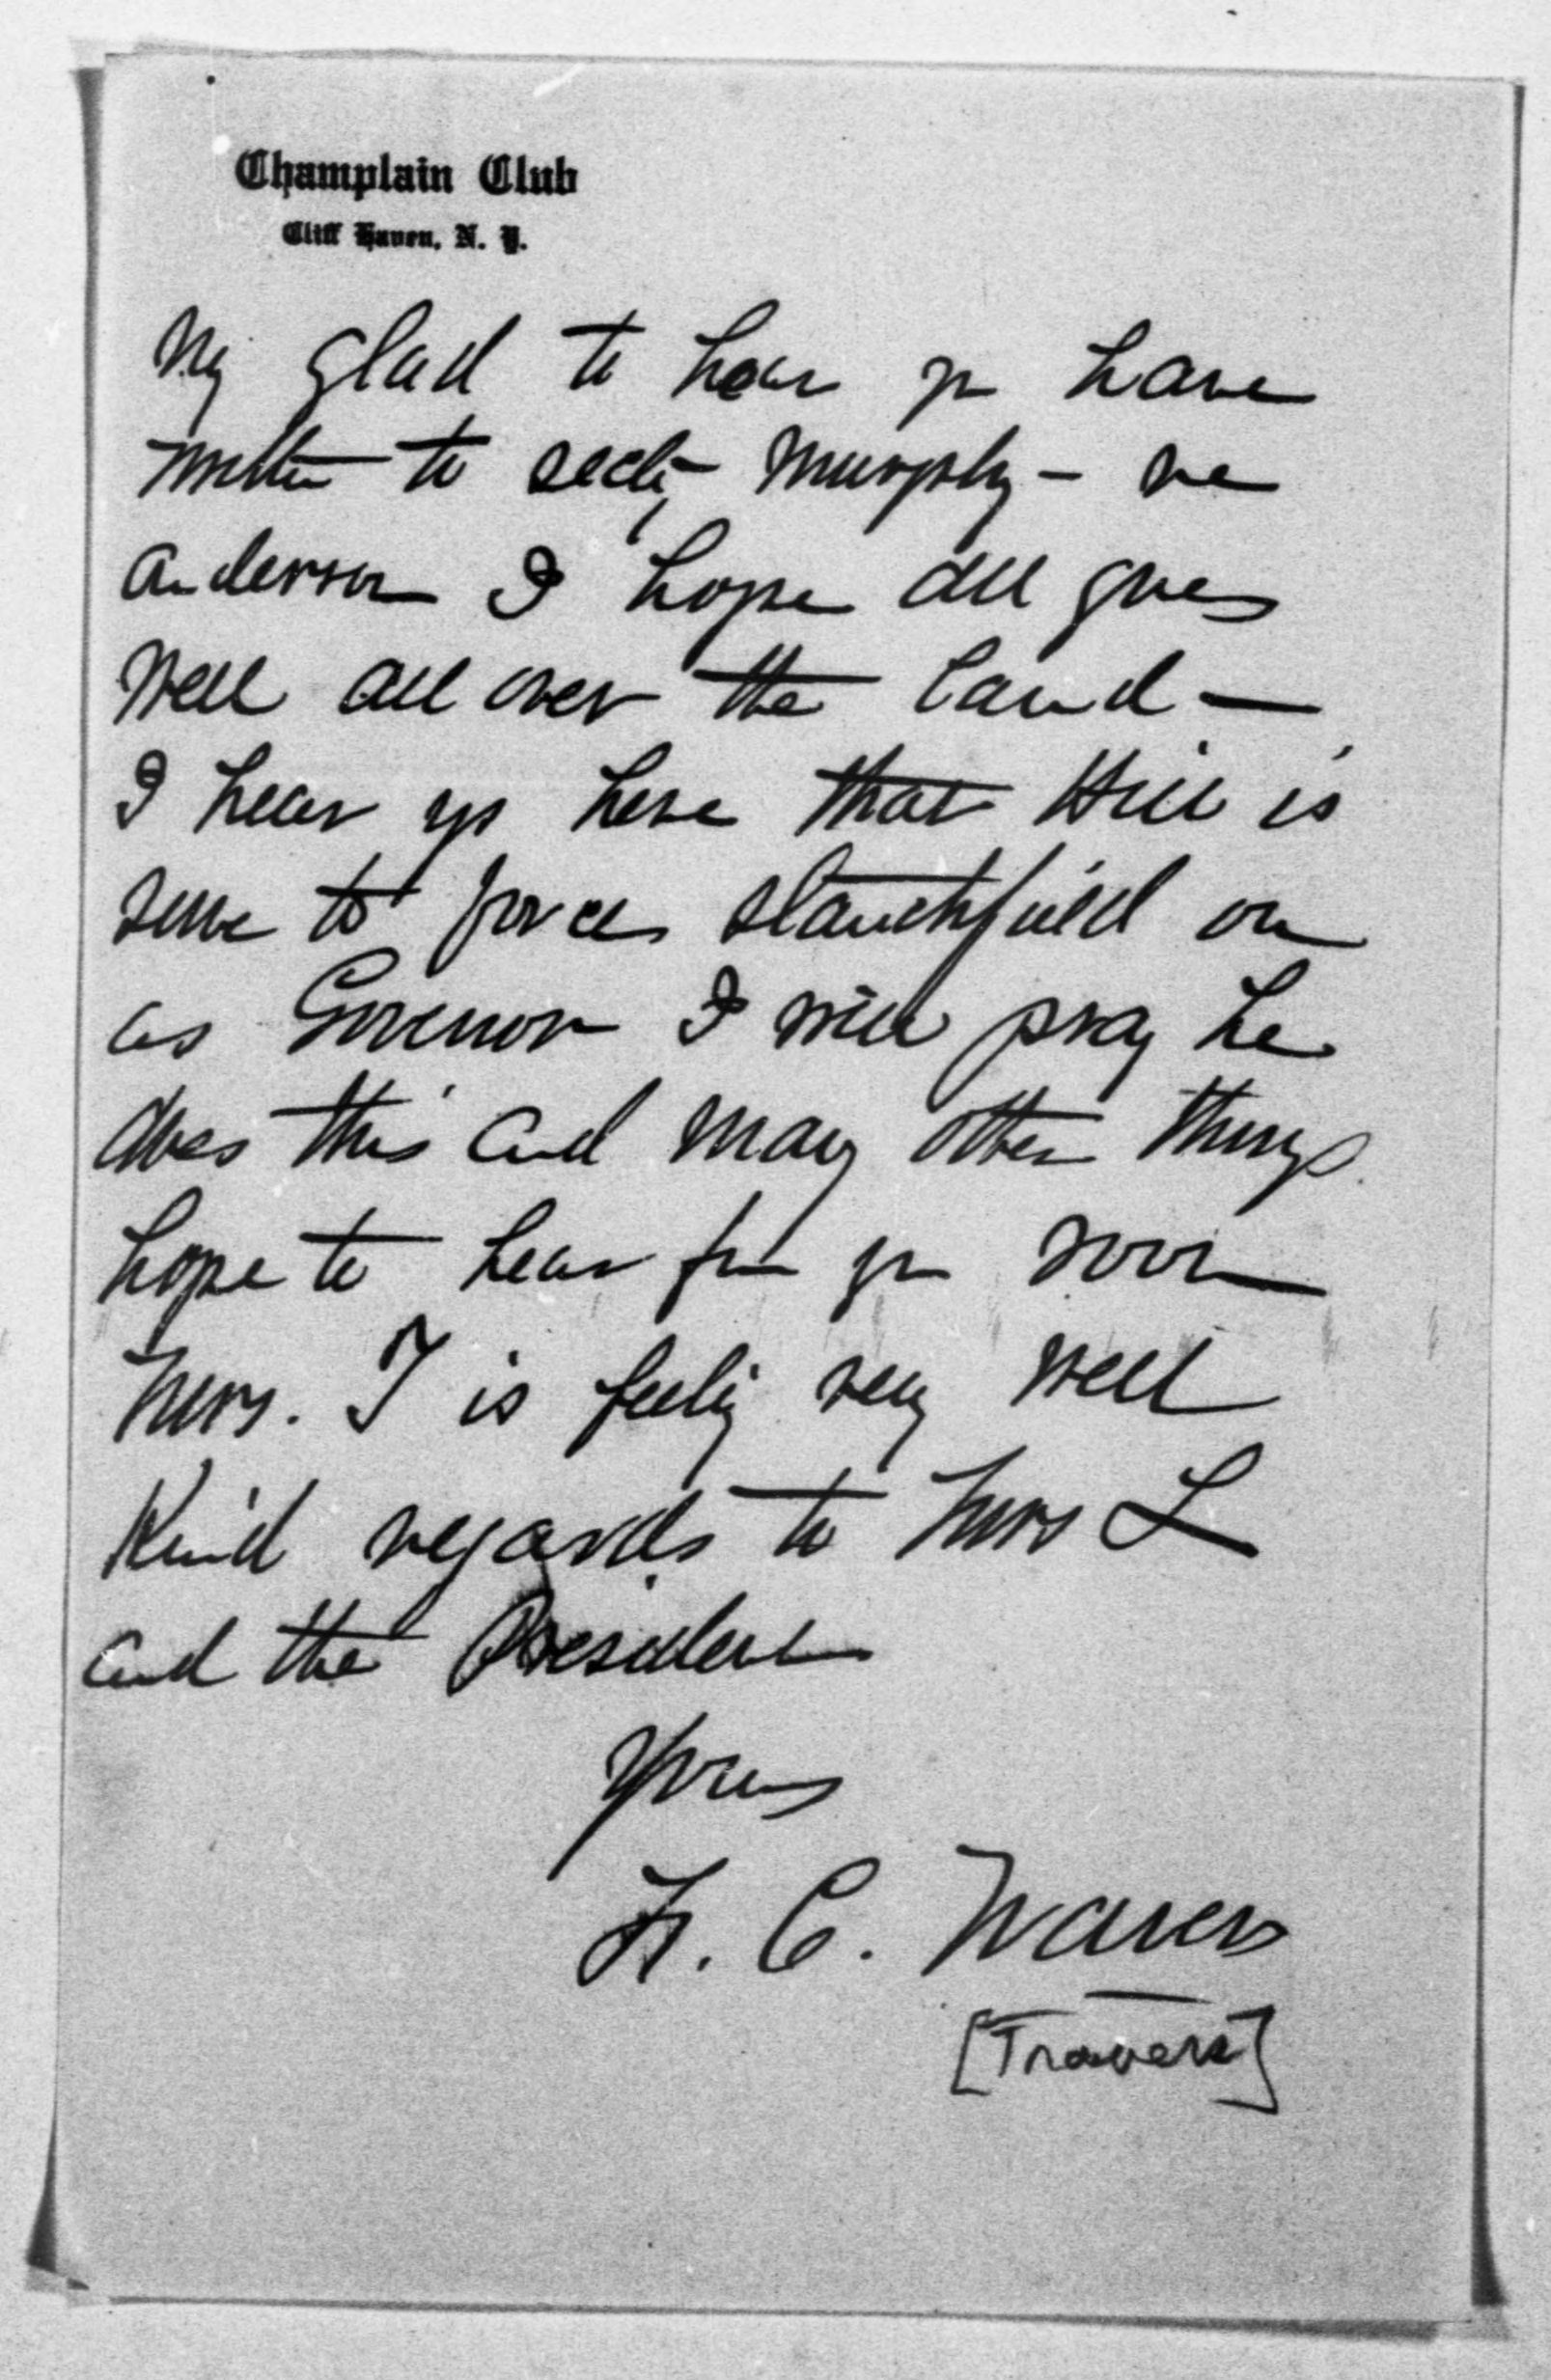 Champlain Club
Cliff Haven, N. Y.
glad to hear you have
written to secty Murphy - re
Anderson I hope all goes
well all over the land —
I hear up here that Hill is
sure to force Stanchfield on
as Governor I will pray he
does this and many other things.
hope to hear from you soon
Mrs. T is feeling very well
Kind regards to Mrs L
and the President
Yours
F. C. Travers
[Travers]